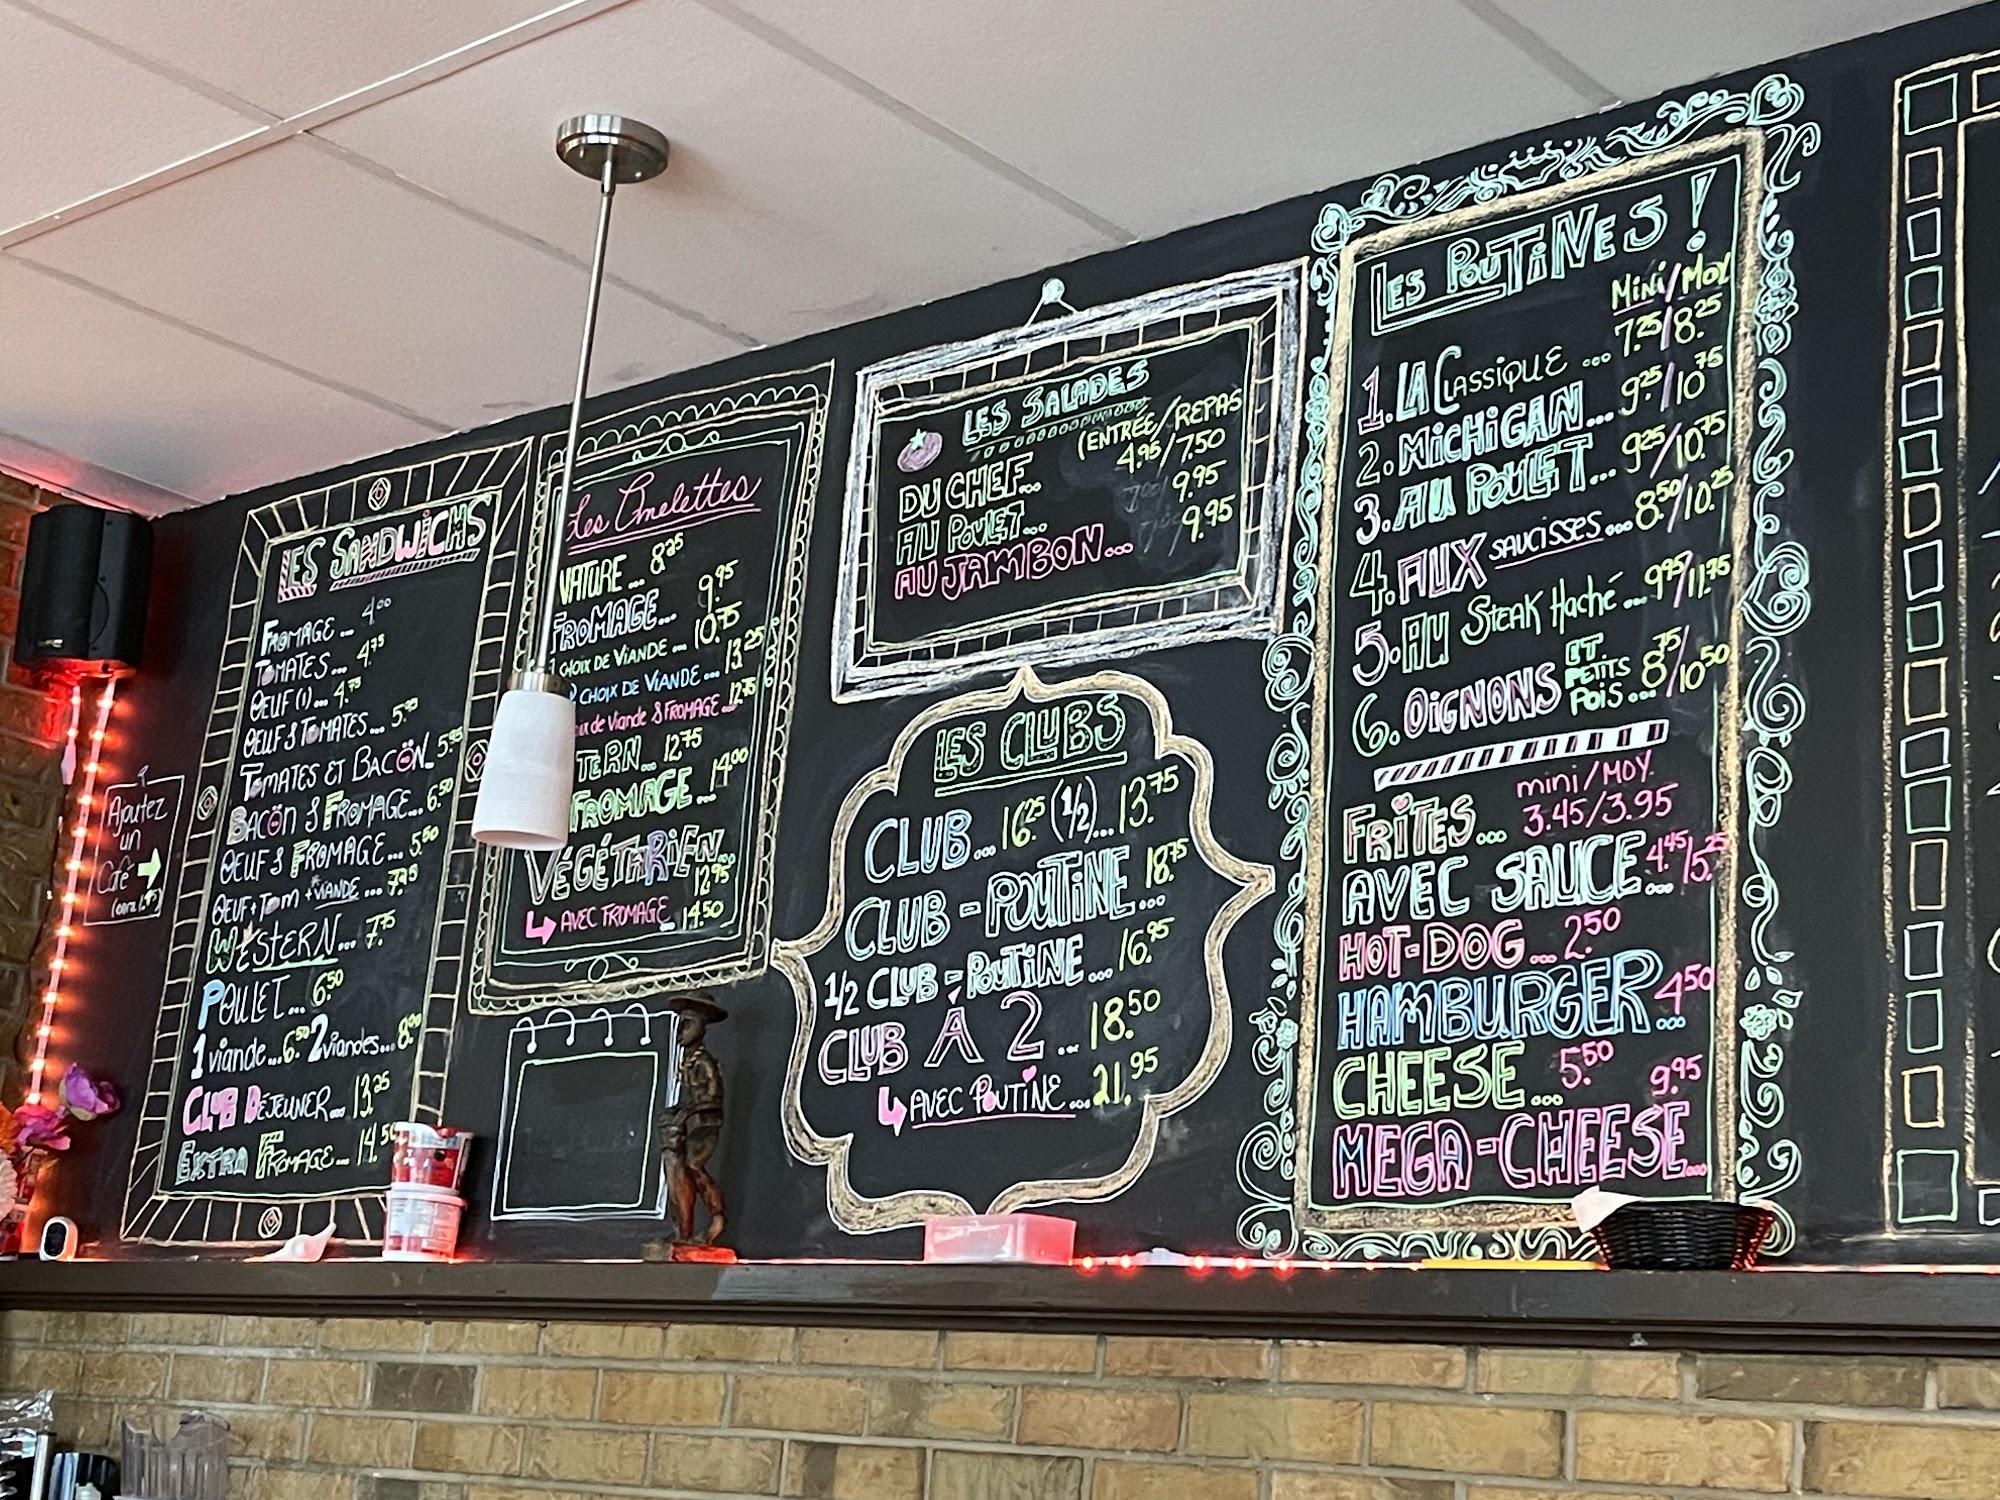 LES SANDWICHS
FROMAGE... 4.00
TOMATES... 4.75
OEUF (1)... 4.75
OEUF & TOMATES...
TOMATES ET BACÖN... 5.95
BACÖN & FROMAGE... 6.50
OEUF & FROMAGE... 5.50
OEUF + TOM + VIANDE...
WESTERN... 7.75
POULET... 6.50
1 viande... 6.50 2 viandes... 8.00
CLUB DÉJEUNER... 13.25
EXTRA FROMAGE... 14.50
Ajoutez
un
Café
Les Omelettes
NATURE... 8.25
FROMAGE... 9.95
CHOIX DE VIANDE... 10.75
CHOIX DE VIANDE... 13.25
de Viande & FROMAGE... 12.75
TERN... 12.75
FROMAGE... 14.00
VÉGÉTARIEN... 12.95
AVEC FROMAGE... 14.50
LES SALADES
(ENTRÉE/REPAS
DU CHEF... 4.95/7.50
AU POULET... 9.95
AU JAMBON... 9.95
LES CLUBS
CLUB... 16.25 (1/2)... 13.75
CLUB - POUTINE... 18.75
1/2 CLUB - POUTINE... 16.95
CLUB À 2... 18.50
AVEC POUTINE... 21.95
LES POUTINES!
MINI/MOY
1. LA CLASSIQUE... 7.25/8.25
2. MICHIGAN... 9.25/10.75
3. AU POULET... 9.25/10.75
4. AUX SAUCISSES... 8.50/10.25
5. AU STEAK Haché... 9.95/11.75
6. OIGNONS ET PETITS POIS... 8.75/10.50
mini/MOY.
FRITES... 3.45/3.95
AVEC SAUCE... 4.45/5.25
HOT-DOG... 2.50
HAMBURGER... 4.50
CHEESE... 5.50
MEGA-CHEESE... 9.95